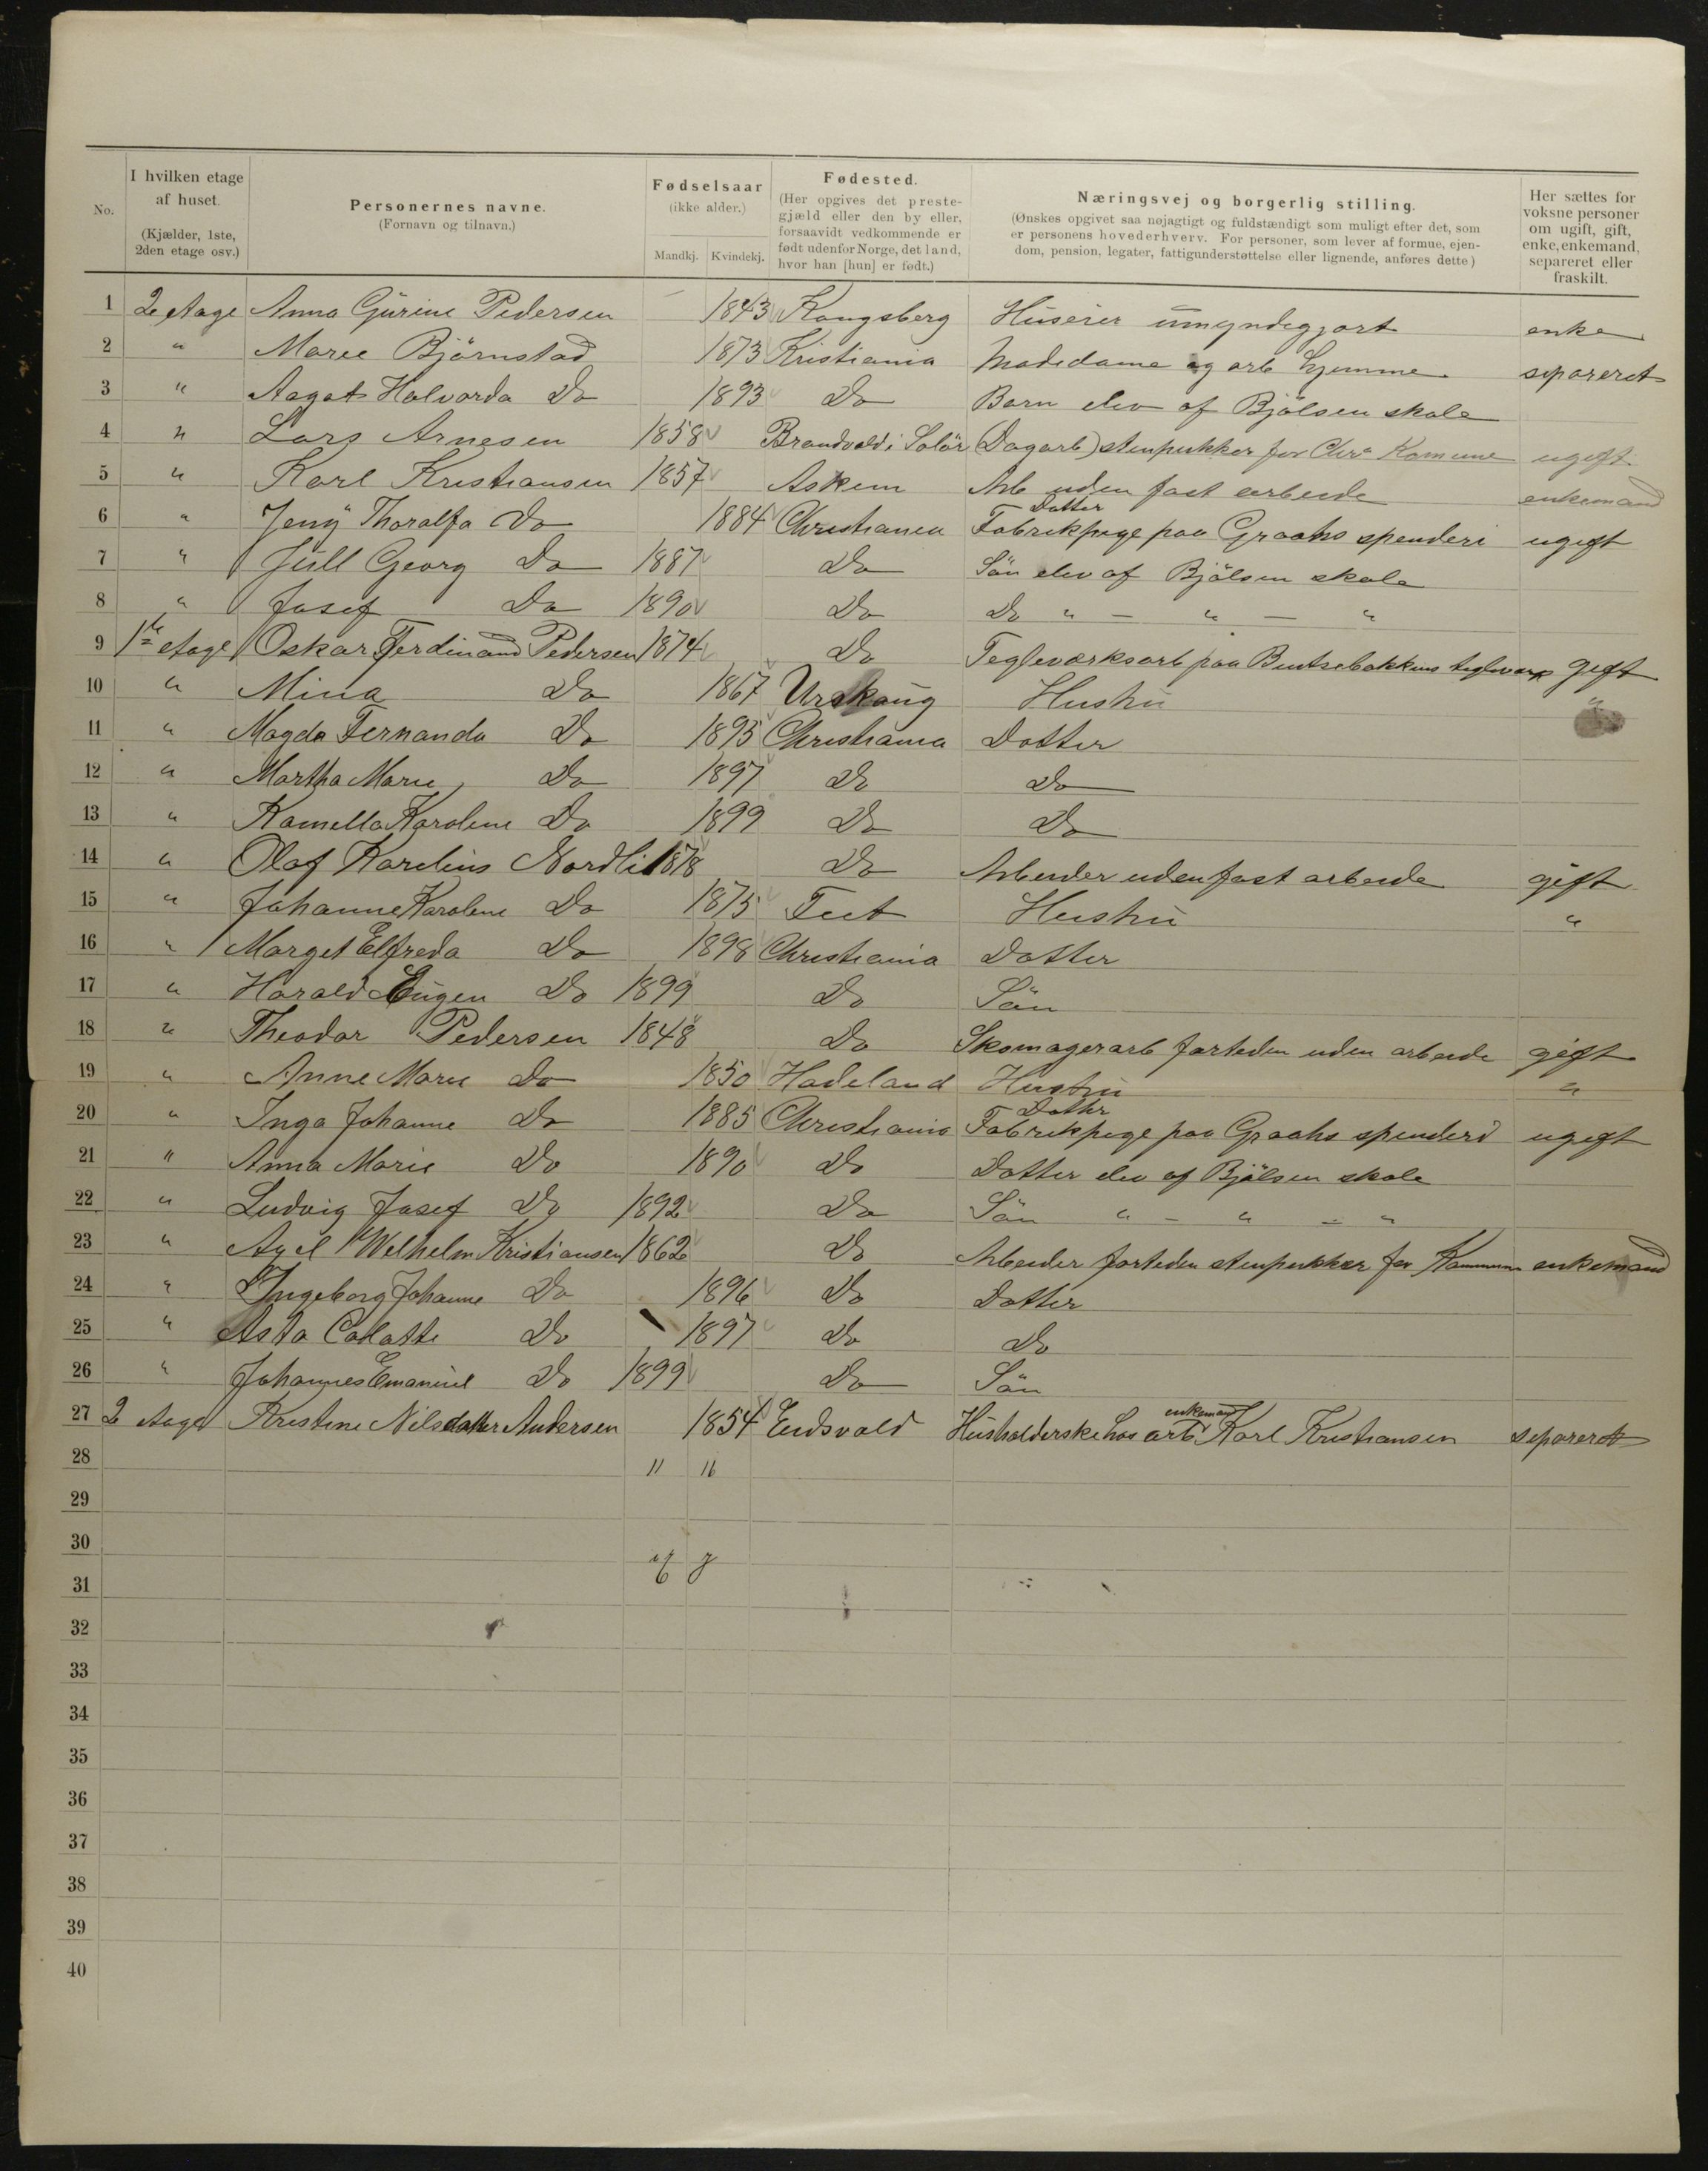 No.
I hvilken etage af huset. (Kjælder, 1ste, 2den etage osv.)
Personernes navne. (Fornavn og tilnavn.)
Fødselsaar (ikke alder.) Mandkj. Kvindekj.
Fødested. (Her opgives det prestegjæld eller den by eller, forsaavidt vedkommende er født udenfor Norge, det land, hvor han [hun] er født.)
Næringsvej og borgerlig stilling. (Ønskes opgivet saa nøjagtigt og fuldstændigt som muligt efter det, som er personens hovederhverv. For personer, som lever af formue, ejendom, pension, legater, fattigunderstøttelse eller lignende, anføres dette)
Her sættes for voksne personer om ugift, gift, enke, enkemand, separeret eller fraskilt.
1 2 etage Anna Gurine Pedersen 1843 Kongsberg Huseier umyndigjort enke
2 " Marie Björnstad 1873 Kristiania Modedame og arb hjemme separeret
3 " Aagot Halvorda Do 1893 Do Barn elev af Bjölsen skole
4 " Lars Arnesen 1858 Brandvold i Solör Dagarb) stenpukker for Chra Komune ugift
5 " Karl Kristiansen 1857 Askem Arb uden fast arbeide enkemand
6 " Jeny Thoralfa Do 1884 Christiania Datter Fabrikpige paa Graahs spenderi ugift
7 " Jull Georg Do 1887 Do Sön elev af Bjölsen skole
8 " Josef Do 1890 Do Do " — " — "
9 1ste etage Oskar Ferdinand Pedersen 1874 Do Tegleværksarb paa Bentsebakkens teglværk gift
10 " Mina Do 1867 Urskoug Hustru "
11 " Magda Fernanda Do 1895 Christiania Datter
12 " Martha Marie Do 1897 Do Do
13 " Kamella Karolene Do 1899 Do Do
14 " Olaf Karelius Nordli 1878 Do Arbeider uden fast arbeide gift
15 " Johanne Karolene Do 1875 Feet Hustru "
16 " Marget Elfreda Do 1898 Christiania Datter
17 " Harald Eugen Do 1899 Do Sön
18 " Theodor Pedersen 1848 Do Skomagerarb forteden uden arbeide gift
19 " Anne Marie Do 1850 Hadeland Hustru "
20 " Inga Johanne Do 1885 Christiania Datter Fabrikpige paa Graahs spinderi ugift
21 " Anna Marie Do 1890 Do Datter elev af Bjölsen skole
22 " Ludvig Josef Do 1892 Do Sön " — " — "
23 " Axel Welhelm Kristiansen 1862 Do Arbeider forteden stenpukker for Kommunen enkemand
24 " Ingeborg Johanne Do 1896 Do Datter
25 " Asta Do 1897 Do Do
26 " Johannes Emanuel Do 1899 Do Sön
27 2 etage Kristine Nilsdatter Andersen 1854 Eidsvold Husholderske hos enkemand arb Karl Kristiansen separeret
28 11 16
29
30
31
32
33
34
35
36
37
38
39
40